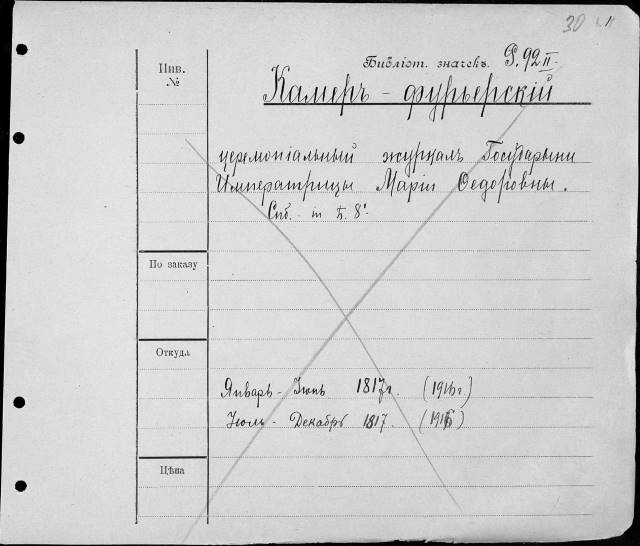 30
Инв.
№
Библіот. значекъ. Р. 92 II.
Камеръ - фурьерскій
церемоніальный журналъ Государыни
Императрицы Маріи Ѳедоровны.
Спб. in 8°.
По заказу
Откуда
Январь - Іюнь 1817 г. (1916 г.)
Іюль - Декабрь 1817. (1916)
Цѣна